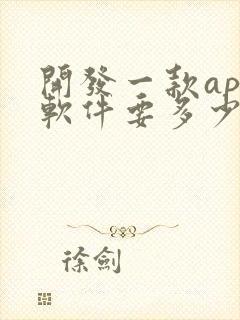 開發一款ap
軟件要多少
徐劍